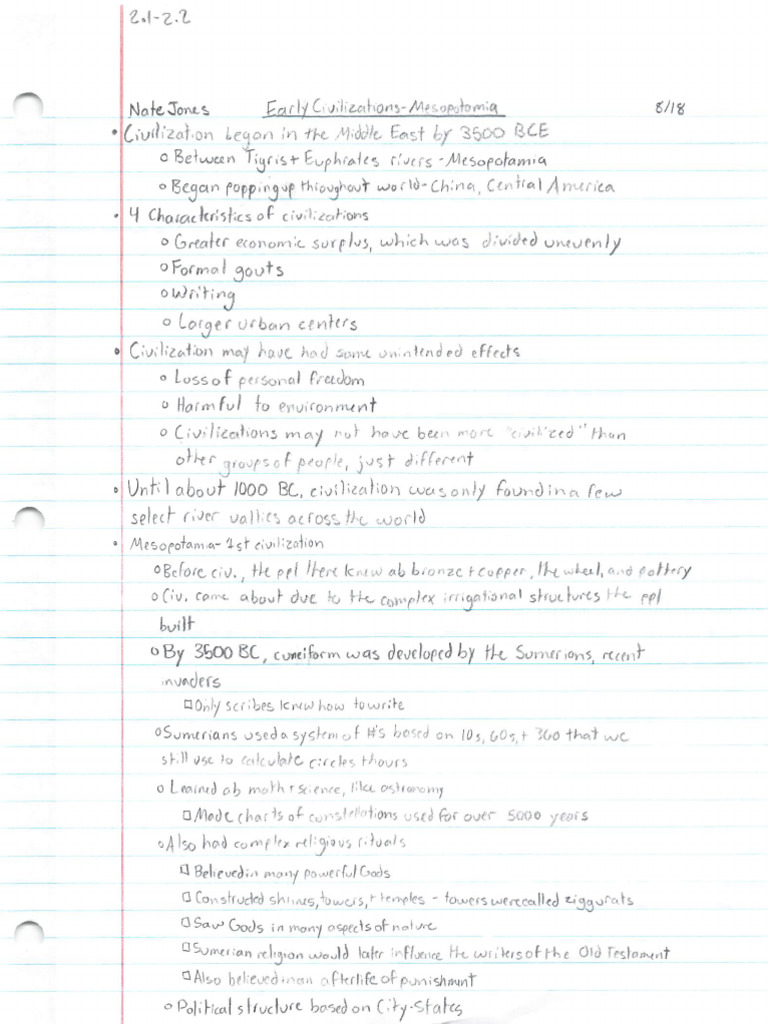 2.1-2.2
Nate Jones Early Civilizations-Mesopotamia 8/18
• Civilization began in the Middle East by 3500 BCE
o Between Tigris + Euphrates rivers - Mesopotamia
o Began popping up throughout world - China, Central America
• 4 Characteristics of civilizations
o Greater economic surplus, which was divided unevenly
o Formal govts
o Writing
o Larger urban centers
• Civilization may have had some unintended effects
o Loss of personal freedom
o Harmful to environment
o Civilizations may not have been more "civilized" than
other groups of people, just different
• Until about 1000 BC, civilization was only found in a few
select river vallies across the world
• Mesopotamia - 1st civilization
o Before civ., the ppl there knew ab bronze + copper, the wheel, and pottery
o Civ. came about due to the complex irrigational structures the ppl
built
o By 3500 BC, cuneiform was developed by the Sumerians, recent
invaders
□ Only scribes knew how to write
o Sumerians used a system of #'s based on 10s, 60s, + 360 that we
still use to calculate circles + hours
o Learned ab math + science, like astronomy
□ Made charts of constellations used for over 5000 years
o Also had complex religious rituals
□ Believed in many powerful Gods
□ Constructed shrines, towers, + temples - towers were called ziggurats
□ Saw Gods in many aspects of nature
□ Sumerian religion would later influence the writers of the Old Testament
□ Also believed in an afterlife of punishment
o Political structure based on City-States